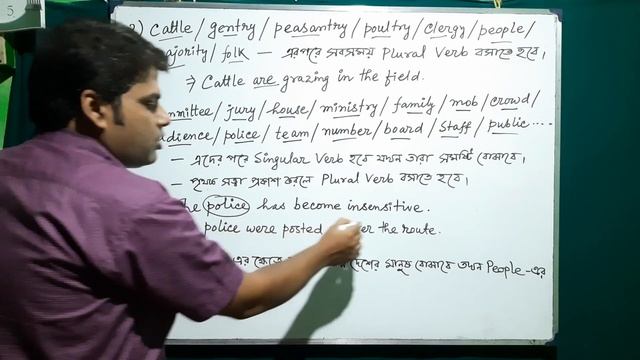 5
Cattle / gentry / peasantry / poultry / clergy / people /
ajority / folk — এরপরে সবসময় Plural Verb বসাতে হবে।
⇒ Cattle are grazing in the field.
mmittee / jury / house / ministry / family / mob / crowd /
dience / police / team / number / board / Staff / public ....
— এদের পরে Singular Verb হবে যখন তারা সমষ্টি বোঝাবে।
— পৃথক সত্বা প্রকাশ করলে Plural Verb বসাতে হবে।
he police has become insensitive.
police were posted er the route.
এর ক্ষেত্রে দেশের মানুষ বোঝাবে তখন People-এর